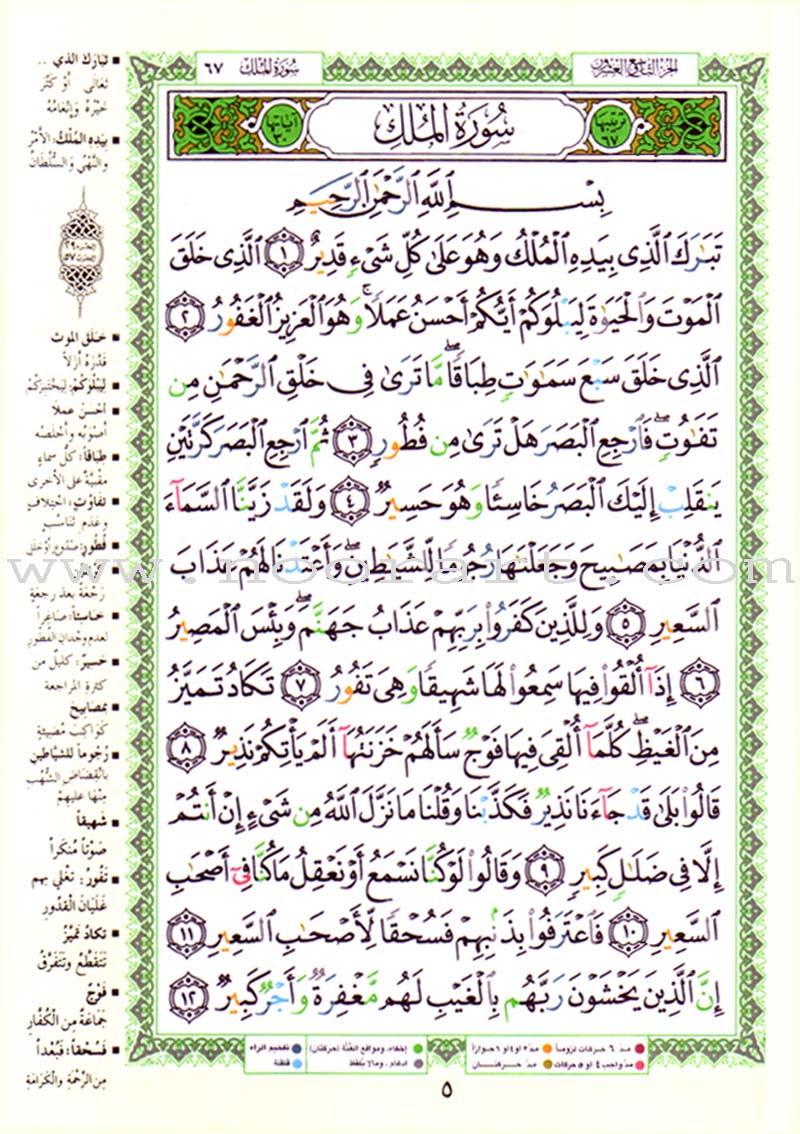 سُورَةُ المُلْكِ ٦٧
سُورَةُ المُلْكِ
ترتيبها ٦٧
آياتها
بِسْمِ اللَّهِ الرَّحْمَٰنِ الرَّحِيمِ
تَبَٰرَكَ الَّذِى بِيَدِهِ الْمُلْكُ وَهُوَ عَلَىٰ كُلِّ شَىْءٍ قَدِيرٌ ١ الَّذِى خَلَقَ
الْمَوْتَ وَالْحَيَوٰةَ لِيَبْلُوَكُمْ أَيُّكُمْ أَحْسَنُ عَمَلًا ۚ وَهُوَ الْعَزِيزُ الْغَفُورُ ٢
الَّذِى خَلَقَ سَبْعَ سَمَٰوَٰتٍ طِبَاقًا ۖ مَّا تَرَىٰ فِى خَلْقِ الرَّحْمَٰنِ مِن
تَفَٰوُتٍ ۖ فَارْجِعِ الْبَصَرَ هَلْ تَرَىٰ مِن فُطُورٍ ٣ ثُمَّ ارْجِعِ الْبَصَرَ كَرَّتَيْنِ
يَنقَلِبْ إِلَيْكَ الْبَصَرُ خَاسِئًا وَهُوَ حَسِيرٌ ٤ وَلَقَدْ زَيَّنَّا السَّمَآءَ
الدُّنْيَا بِمَصَٰبِيحَ وَجَعَلْنَٰهَا رُجُومًا لِّلشَّيَٰطِينِ ۖ وَأَعْتَدْنَا لَهُمْ عَذَابَ
السَّعِيرِ ٥ وَلِلَّذِينَ كَفَرُوا۟ بِرَبِّهِمْ عَذَابُ جَهَنَّمَ ۖ وَبِئْسَ الْمَصِيرُ
٦ إِذَآ أُلْقُوا۟ فِيهَا سَمِعُوا۟ لَهَا شَهِيقًا وَهِىَ تَفُورُ ٧ تَكَادُ تَمَيَّزُ
مِنَ الْغَيْظِ ۖ كُلَّمَآ أُلْقِىَ فِيهَا فَوْجٌ سَأَلَهُمْ خَزَنَتُهَآ أَلَمْ يَأْتِكُمْ نَذِيرٌ ٨
قَالُوا۟ بَلَىٰ قَدْ جَآءَنَا نَذِيرٌ فَكَذَّبْنَا وَقُلْنَا مَا نَزَّلَ اللَّهُ مِن شَىْءٍ إِنْ أَنتُمْ
إِلَّا فِى ضَلَٰلٍ كَبِيرٍ ٩ وَقَالُوا۟ لَوْ كُنَّا نَسْمَعُ أَوْ نَعْقِلُ مَا كُنَّا فِىٓ أَصْحَٰبِ
السَّعِيرِ ١٠ فَاعْتَرَفُوا۟ بِذَنۢبِهِمْ فَسُحْقًا لِّأَصْحَٰبِ السَّعِيرِ ١١
إِنَّ الَّذِينَ يَخْشَوْنَ رَبَّهُم بِالْغَيْبِ لَهُم مَّغْفِرَةٌ وَأَجْرٌ كَبِيرٌ ١٢
تَبَارَكَ الذي ..
تَعَالَى أوْ كَثُرَ
خَيْرُهُ وَإِنْعَامُهُ
بِيَدِهِ المُلْكُ: الأَمْرُ
والنَّهْيُ وَالسُّلْطَانُ
خَلَقَ الموتَ
قَدَّرَهُ أزَلاً
لِيَبْلُوَكُمْ: لِيَخْتَبِرَكُمْ
أحْسَنُ عملاً
أصْوَبُه وأخْلَصُه
طِبَاقاً: كلُّ سماءٍ
مقبيَّةٌ على الأخرى
تفاوُتٍ: اختلافٍ
وعَدَمِ تَناسُبٍ
فُطُورٍ: صُدُوعٍ أو خلل
رَجْعَةً بعدَ رجعةٍ
خاسئاً: صاغِراً
لعدم وجْدان الفطور
حَسيرٌ: كليلٌ من
كثرةِ المراجعة
بمصابيحَ
كواكبَ مُضيئةٍ
رُجُوماً للشياطينِ
بانْقِضَاضِ الشُّهُبِ
مِنْهَا عليهمْ
شَهيقاً
صَوْتاً مُنْكَراً
تَفُورُ: تَغْلي بهم
غَلَيَانَ القُدُورِ
تكادُ تميَّزُ
تَتَقَطَّعُ وتَتَفَرَّقُ
فَوْجٌ
جَمَاعَةٌ مِنَ الكُفَّارِ
فَسُحْقاً: فَبُعْداً
مِنَ الرَّحْمَةِ والكَرَامَةِ
www.noorart.com
مدّ ٦ حركات لزوماً
مدّ ٢ او ٤ او ٦ جوازاً
مدّ واجب ٤ او ٥ حركات
مدّ حركتان
إخفاء، ومواقع الغُنَّة (حركتان)
ادغام، ومالا يُلفظ
تفخيم الراء
قلقلة
٥